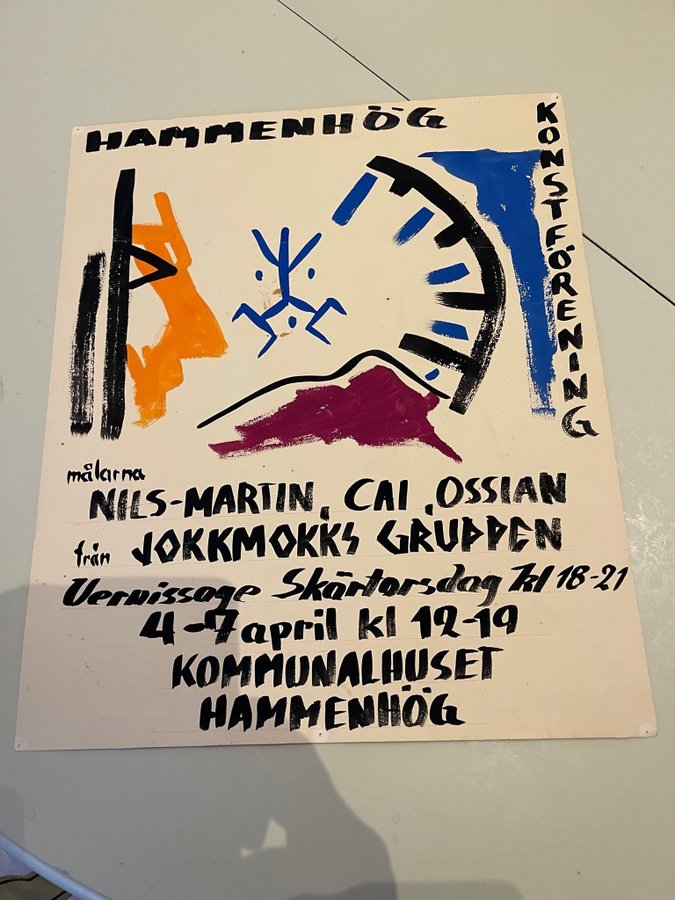 HAMMENHÖG
KONSTFÖRENING
målarna
NILS-MARTIN, CAI, OSSIAN
från JOKKMOKKS GRUPPEN
Vernissage Skärtorsdag kl 18-21
4-7 april kl 12-19
KOMMUNALHUSET
HAMMENHÖG